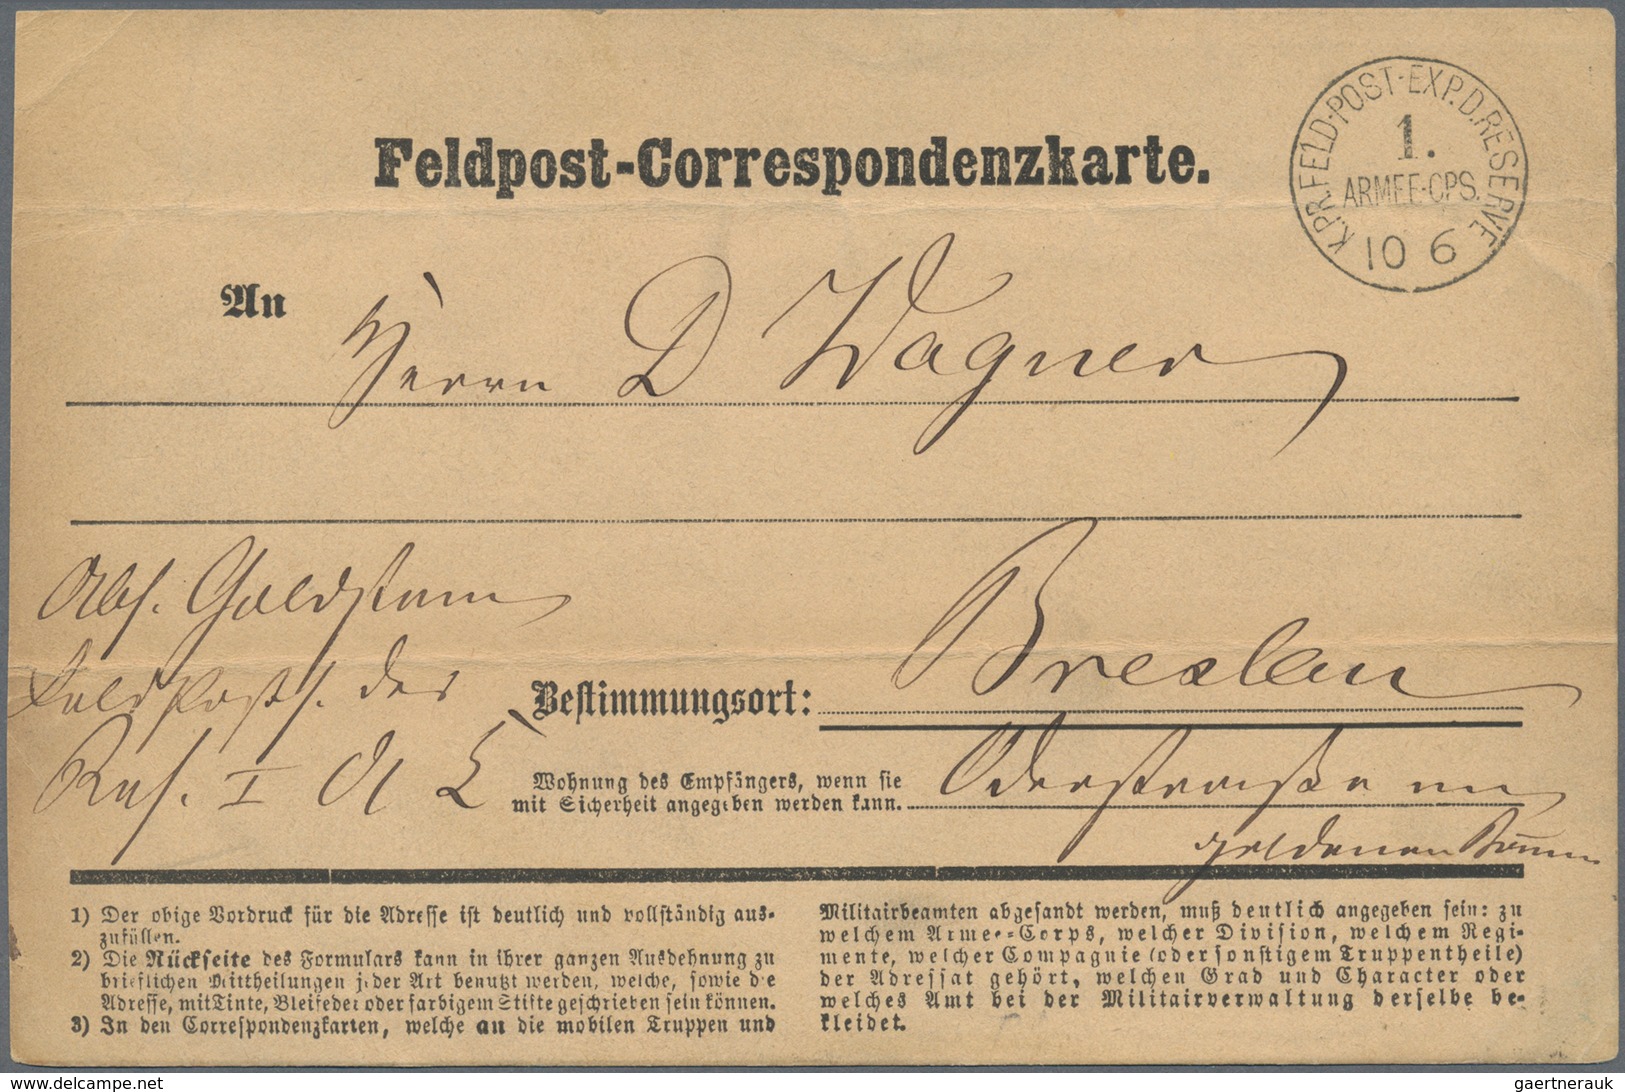 Feldpost-Correspondenzkarte.
K.PR.FELD-POST-EXP.D.RESERVE
1.
ARMEE-CPS.
10 6
An Herrn D Wagner
Abs. Goldstam
Feldposts. der
Res. I A C
Breslau
Bestimmungsort:
Wohnung des Empfängers, wenn sie
mit Sicherheit angegeben werden kann.
Oderstraße im
goldenen
1) Der obige Vordruck für die Adresse ist deutlich und vollständig aus-
zufüllen.
2) Die Rückseite des Formulars kann in ihrer ganzen Ausdehnung zu
brieflichen Mittheilungen jeder Art benutzt werden, welche, sowie die
Adresse, mit Tinte, Bleifeder oder farbigem Stifte geschrieben sein können.
3) In den Correspondenzkarten, welche an die mobilen Truppen und
Militairbeamten abgesandt werden, muß deutlich angegeben sein: zu
welchem Armee-Corps, welcher Division, welchem Regi-
mente, welcher Compagnie (oder sonstigem Truppentheile)
der Adressat gehört, welchen Grad und Character oder
welches Amt bei der Militairverwaltung derselbe be-
kleidet.
www.delcampe.net
gaertnerauk